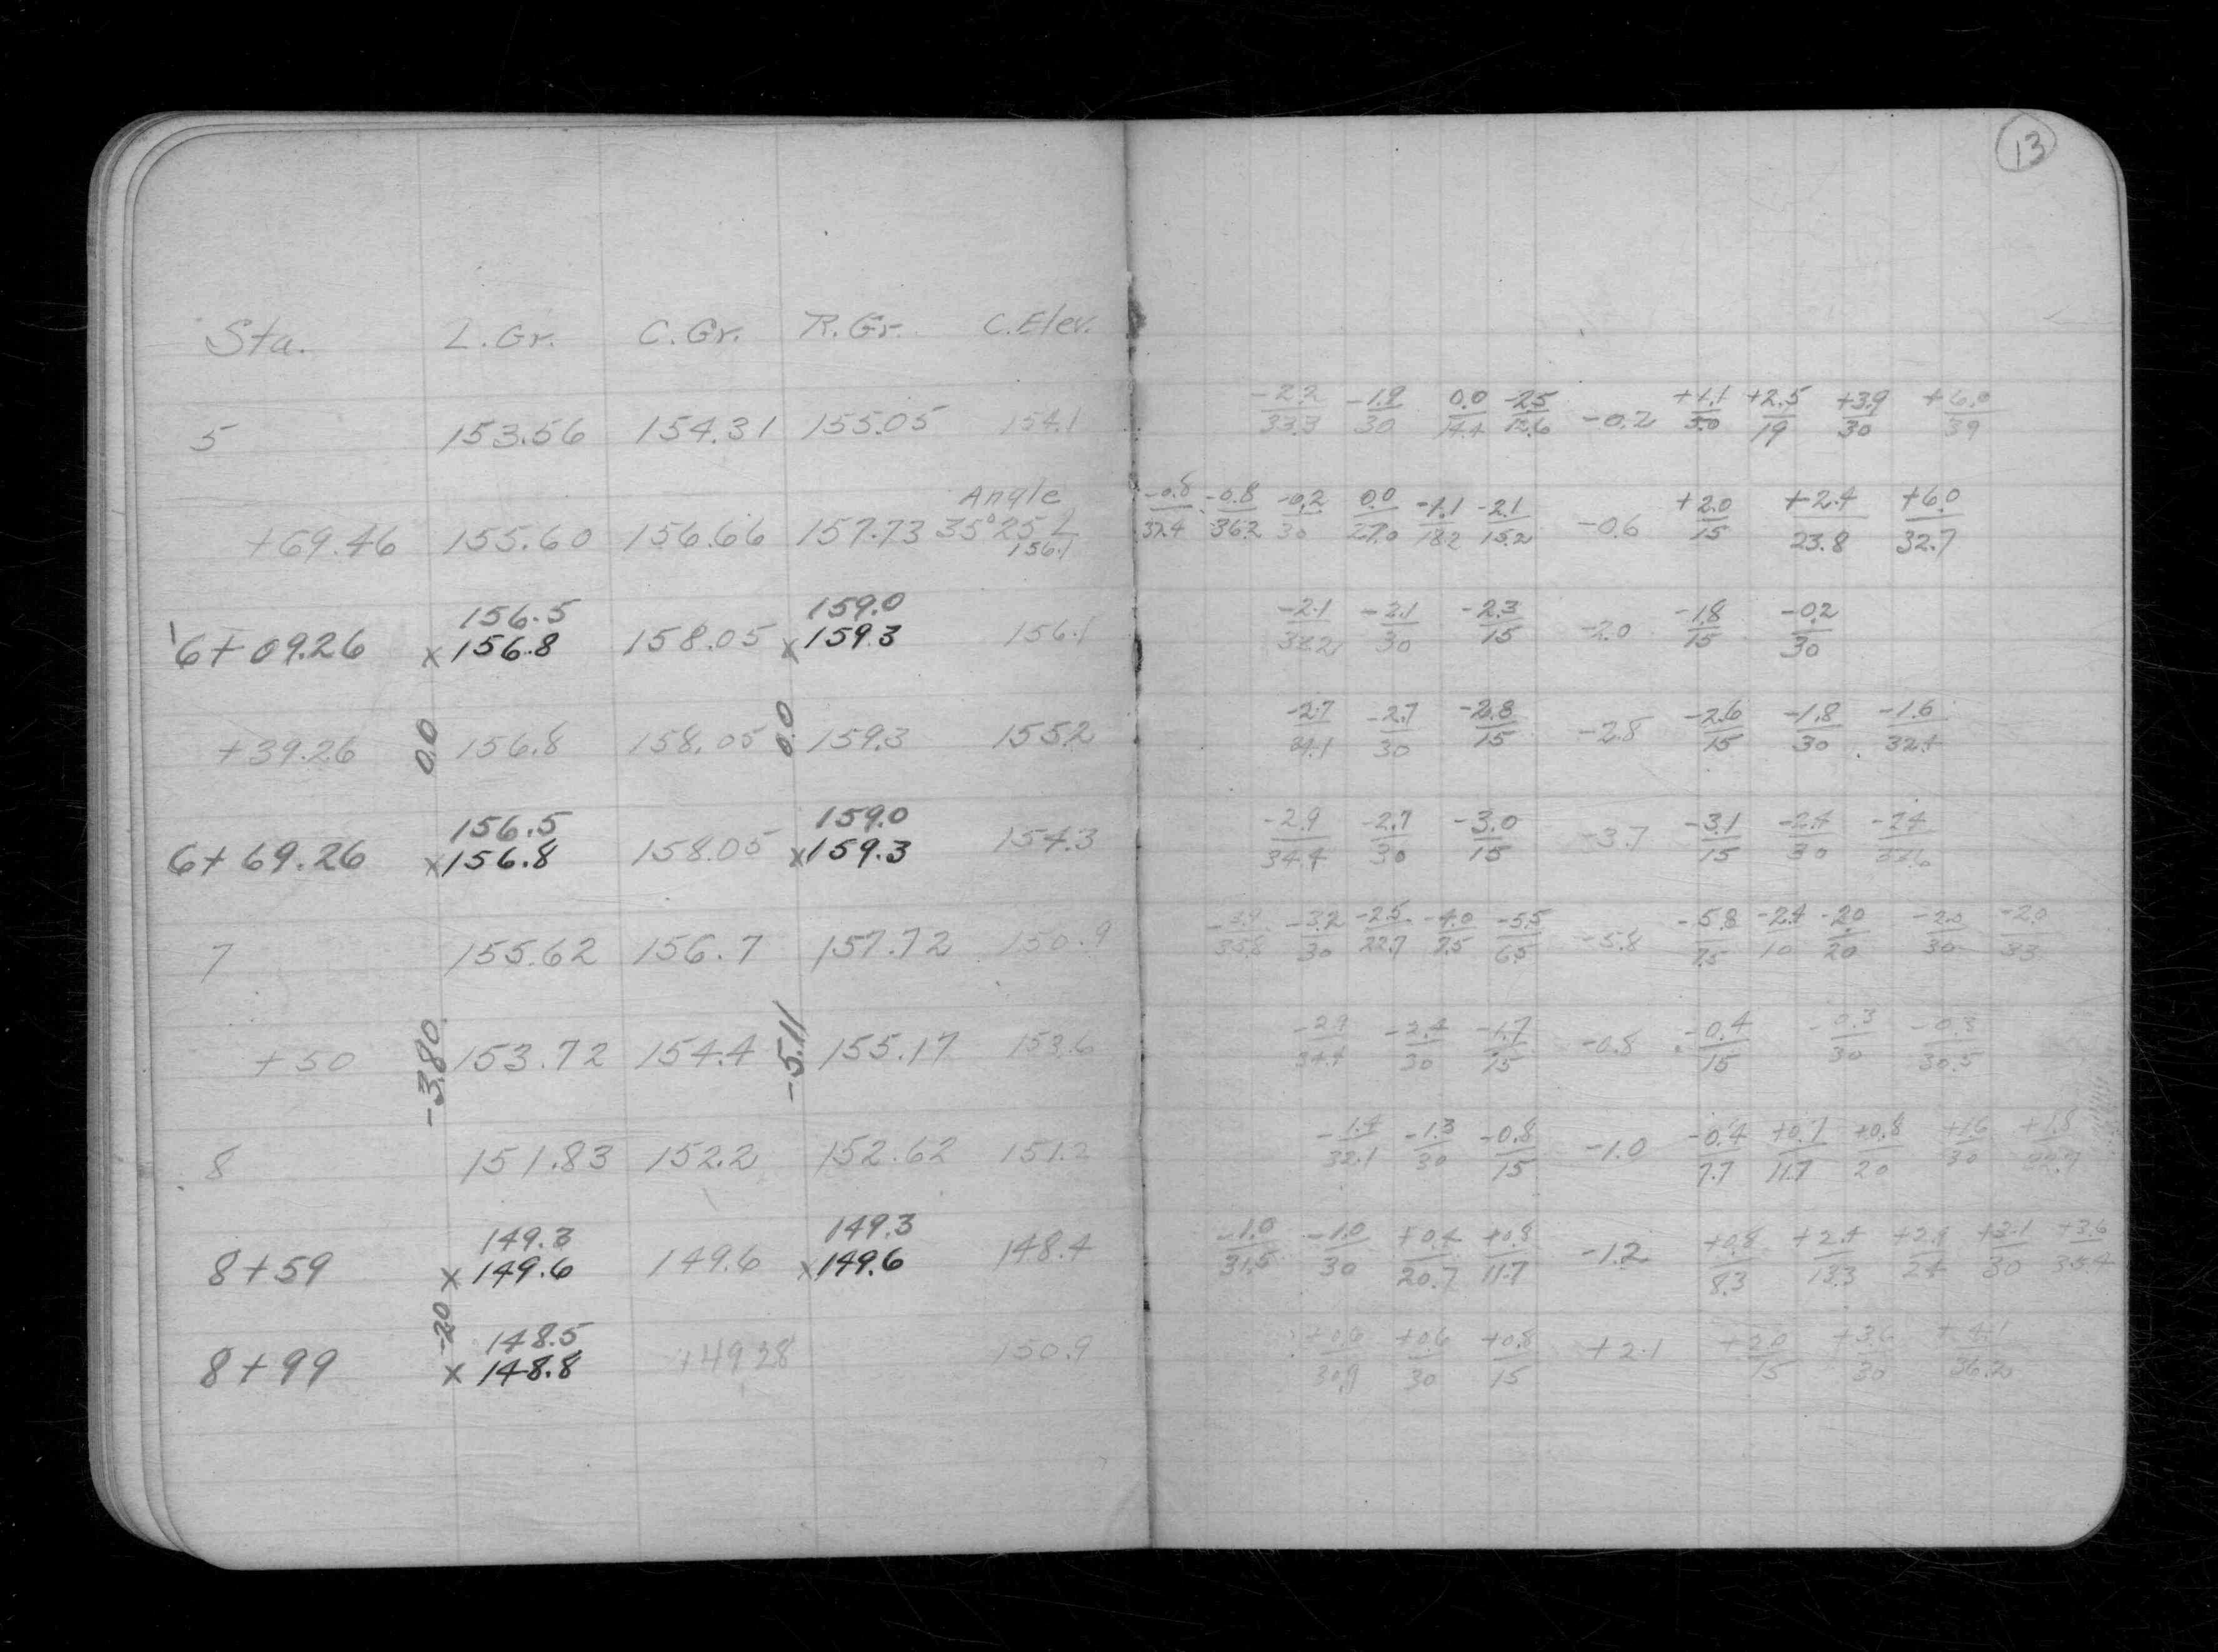 13
Sta. L.Gr. C.Gr. R.Gr. C.Elev.
5 153.56 154.31 155.05 154.1 -2.2/33.3 -1.9/30 0.0/14.4 -2.5/12.6 -0.2 +1.1/5.0 +2.5/19 +3.9/30 +6.0/39
Angle
+69.46 155.60 156.66 157.73 35°25' L 156.1 -0.8/37.4 -0.8/36.2 -0.2/30 0.0/27.0 -1.1/18.2 -2.1/15.2 -0.6 +2.0/15 +2.4/23.8 +6.0/32.7
156.5 159.0
6+09.26 x156.8 158.05 x159.3 156.1 -2.1/33.2 -2.1/30 -2.3/15 -2.0 -1.8/15 -0.2/30
+39.26 0.0 156.8 158.05 0.0 159.3 155.2 -2.7/34.1 -2.7/30 -2.8/15 -2.8 -2.6/15 -1.8/30 -1.6/32.4
156.5 159.0
6+69.26 x156.8 158.05 x159.3 154.3 -2.9/34.4 -2.7/30 -3.0/15 -3.7 -3.1/15 -2.4/30 -2.4/33.6
7 155.62 156.7 157.72 150.9 -3.9/35.8 -3.2/30 -2.5/22.7 -4.0/7.5 -5.5/6.5 -5.8 -5.8/7.5 -2.4/10 -2.0/20 -2.0/30 -2.0/33
+50 -3.80 153.72 154.4 -5.11 155.17 153.6 -2.9/34.4 -2.4/30 -1.7/15 -0.8 -0.4/15 -0.3/30 -0.3/30.5
8 151.83 152.2 152.62 151.2 -1.4/32.1 -1.3/30 -0.8/15 -1.0 -0.4/7.7 +0.1/11.7 +0.8/20 +1.6/30 +1.8/32.7
149.3 149.3
8+59 x149.6 149.6 x149.6 148.4 -1.0/31.5 -1.0/30 +0.4/20.7 +0.8/11.7 -1.2 +0.8/8.3 +2.4/13.3 +2.9/24 +3.1/30 +3.6/35.4
-2.0 148.5
8+99 x148.8 149.28 150.9 +0.6/30.9 +0.6/30 +0.8/15 +2.1 +2.0/15 +3.6/30 +4.1/36.2